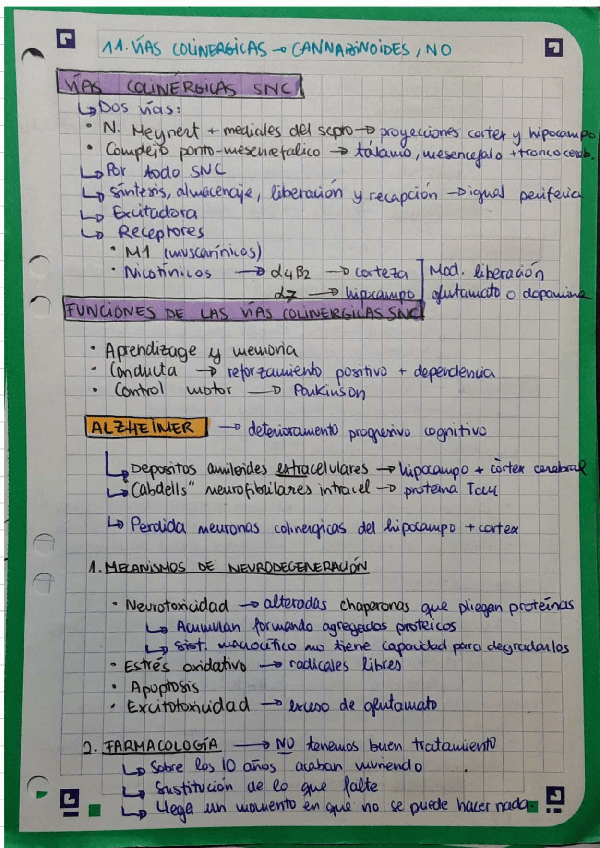 11. VÍAS COLINERGICAS → CANNABINOIDES, NO
VÍAS COLINÉRGICAS SNC
↳ Dos vías:
• N. Meynert + mediales del septo → proyecciones cortex y hipocampo
• Complejo ponto-mesencefalico → tálamo, mesencefalo + tronco cereb.
↳ Por todo SNC
↳ Síntesis, almacenaje, liberación y recapción → igual periferia
↳ Excitadora
↳ Receptores
• M1 (muscarínicos)
• Nicotínicos → α4β2 → corteza Mod. liberación
α7 → hipocampo glutamato o dopamina
FUNCIONES DE LAS VÍAS COLINERGICAS SNC
• Aprendizage y memoria
• Conducta → reforzamiento positivo + dependencia
• Control motor → Parkinson
ALZHEIMER → deterioramento progresivo cognitivo
↳ Depositos amiloides extracelulares → hipocampo + còrtex cerebral
↳ Cabdells" neurofibrilares intracel → proteína Tau
↳ Perdida neuronas colinergicas del hipocampo + cortex
1. MECANISMOS DE NEURODEGENERACIÓN
• Neurotoxicidad → alteradas chaperonas que pliegan proteínas
↳ Acumulan formando agregados protéicos
↳ Sist. monocítico no tiene capacidad para degradarlos
• Estrés oxidativo → radicales libres
• Apoptosis
• Excitotoxicidad → exceso de glutamato
2. FARMACOLOGÍA → NO tenemos buen tratamiento
↳ Sobre los 10 años acaban muriendo
↳ Sustitución de lo que falte
↳ Llega un momento en que no se puede hacer nada